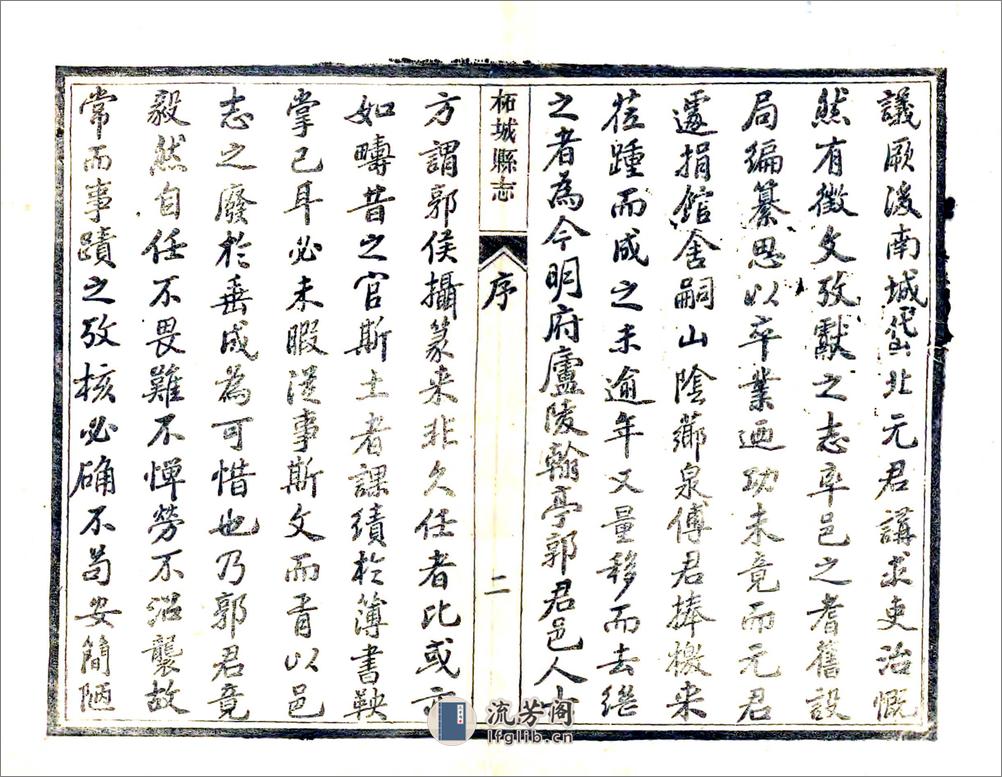 議厥後南城岱北元君講求吏治慨
然有徵文攷獻之志率邑之耆舊設
局編纂思以卒業迺功未竟而元君
遽捐館舍嗣山陰薌泉傅君捧檄来
莅踵而成之未逾年又量移而去継
之者為今明府廬陵翰亭郭君邑人士
柘城縣志
序
二
方謂郭侯攝篆来非久任者比或亦
如疇昔之官斯土者課績於簿書鞅
掌已耳必未暇從事斯文而肎以邑
志之廢於垂成為可惜也乃郭君竟
毅然自任不畏難不憚勞不沿襲故
常而事蹟之攷核必确不苟安簡陋
流芳阁
lfglib.cn